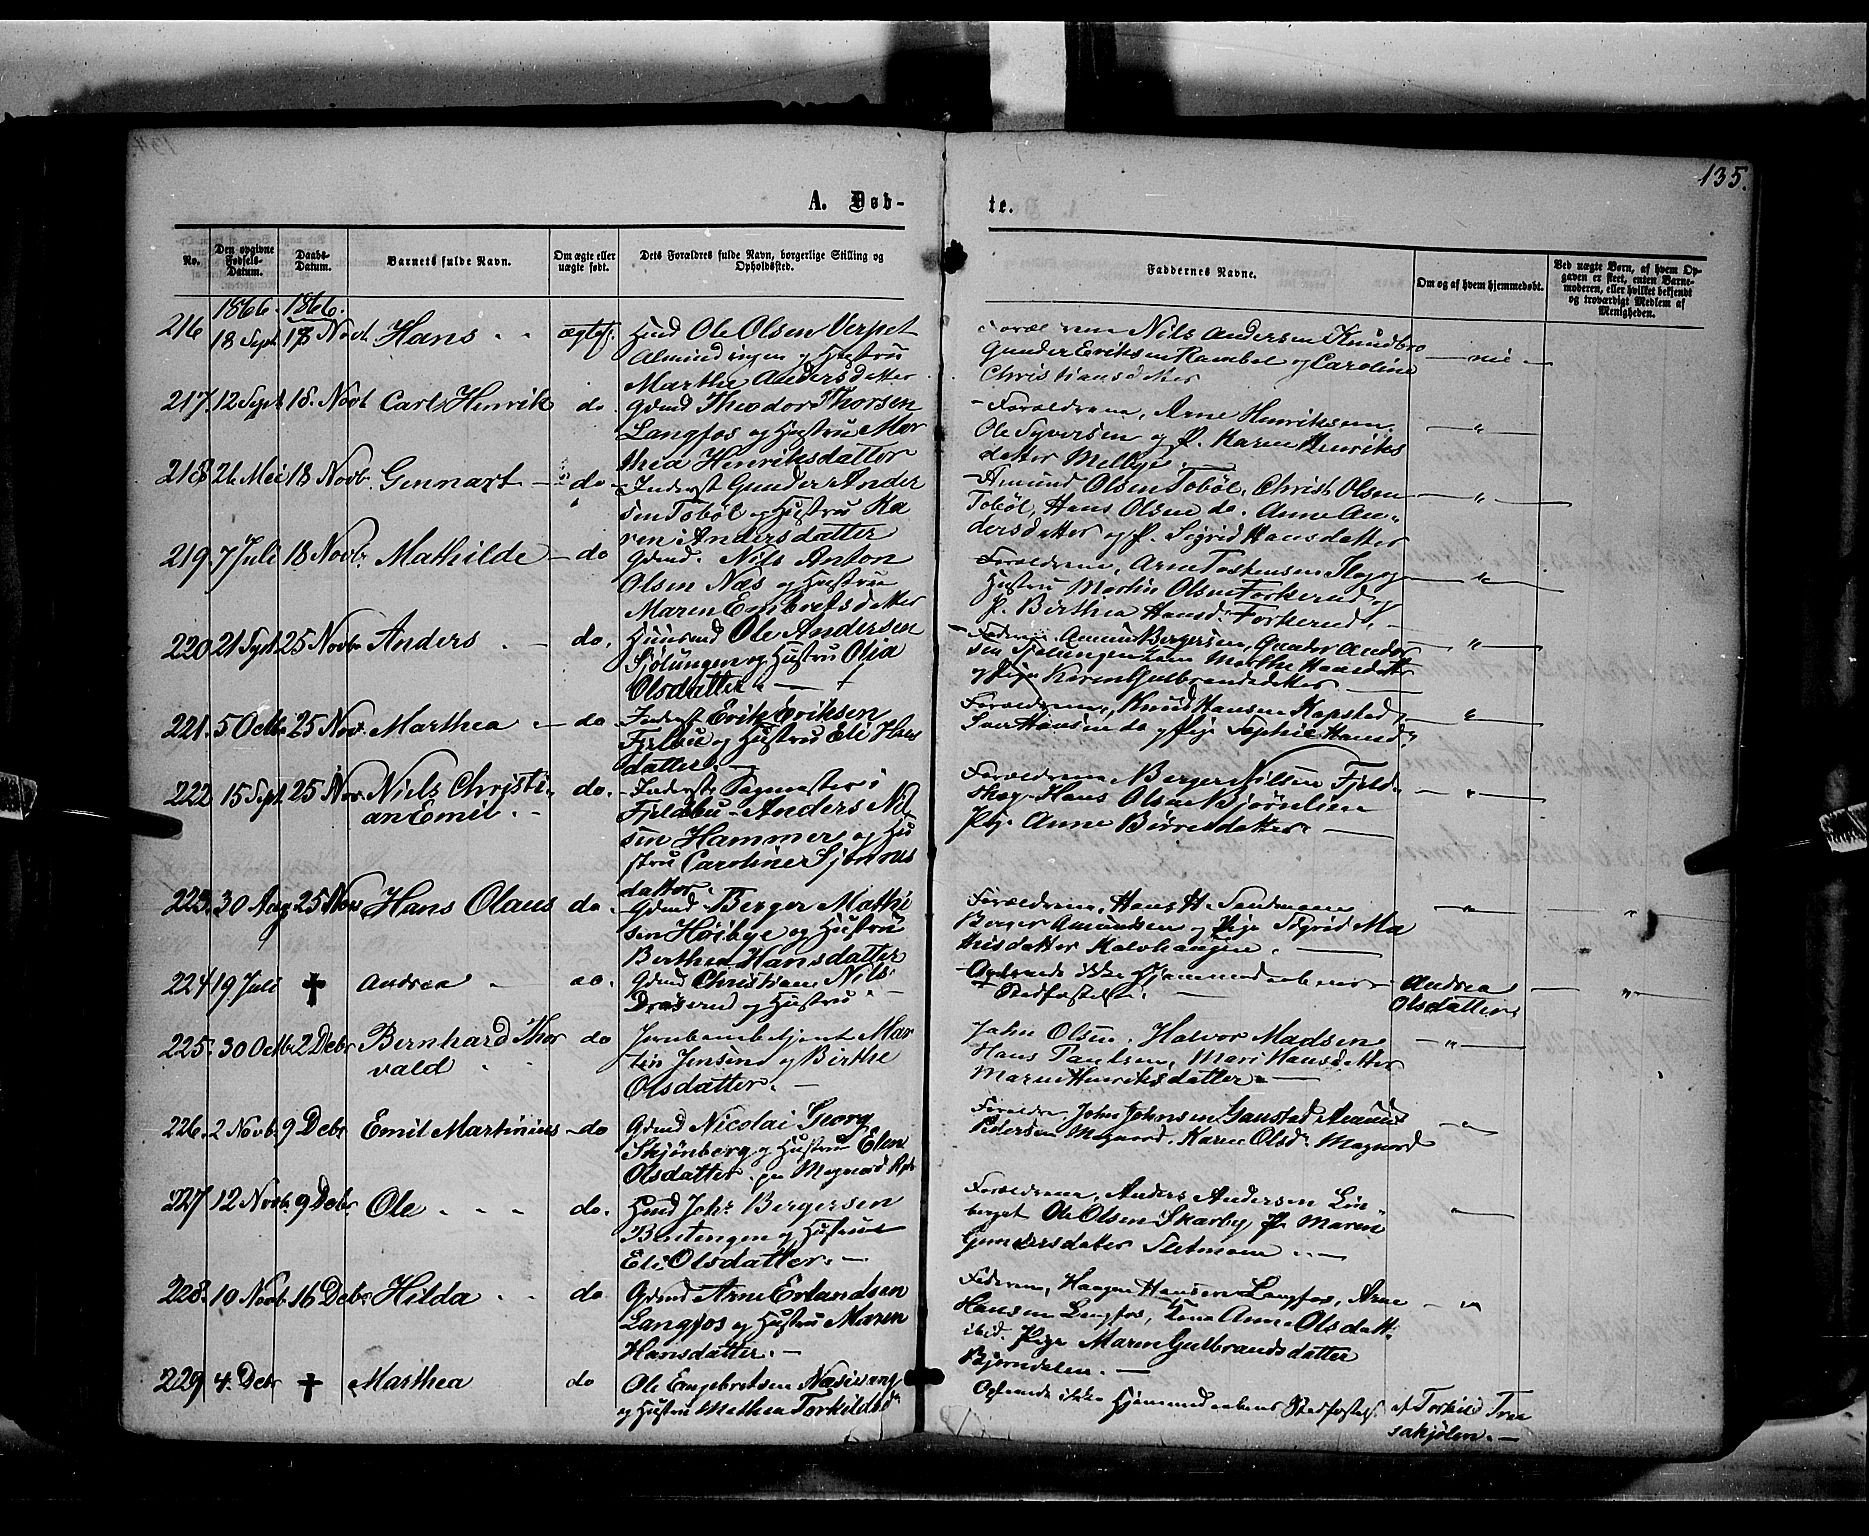 135.
A. Døb-
te.
No.
Den opgivne Fødsels-Datum.
Daabs-Datum.
Barnets fulde Navn.
Om ægte eller uægte født.
Dets Forældres fulde Navn, borgerlige Stilling og Opholdssted.
Faddernes Navne.
Om og af hvem hjemmedøbt.
Ved uægte Børn, af hvem Opgaven er skeet, enten Barnemoderen, eller hvilket bekjendt og troværdigt Medlem af Menigheden.
1866. 1866.
216 18 Sept. 18 Novb. Hans ægtef. Huusmd Ole Olsen Verpet
Almindingen og Hustru
Marthe Andersdatter
Forældrene Nils Andersen
Gunder Eriksen og Caroline
Christiansdatter
217. 12 Sept. 18. Novb Carl Henrik do Gdmd Theodor Thorsen
Langfos og Hustru Mar
thea Henriksdatter
Forældrene, Arne Henriksen
Ole Syversen og P. Karen Henriks
datter Melbye.
218 26 Mei 18 Novb. Gennart do Inderst Gunder Ander
sen Tobøl og Hustru Ka
ren Andersdatter
Amund Olsen Tobøl, Christ. Olsen
Tobøl, Hans Olsen do. Anne An„
dersdatter og P. Sigrid Hansdatter
219. 7 Juli 18 Novb. Mathilde do Gdmd. Nils Anton
Olsen Næs og Hustru
Maren Embretsdatter
Forældrene, Arne Tostensen
Hustru Martin Olsen Torkerud
P. Berthea Hansd. Torkerud.
220. 21 Sept 25 Novb. Anders do. Huusmd Ole Andersen
Sjølungen og Hustru Olia
Olsdatter.
Faderen, Amund Bergersen, Gunder Ander
sen Sjølungen Kone Marthe Hansdatt
og Pige Karen Gulbrandsdatter
221. 5 Octb. 25 Nov. Marthea do Inderst Erik Eriksen
Fjeldbu og Hustru Eli Hans
datter.
Forældrene, Knud Hansen Hapstad,
Iver Hansen do og Pige Sophie Hansd„
222 15 Sept. 25 Nov. Niels Christi
an Emil. do. Inderst, Sagmester i
Fjeldbu - Anders Nil
sen Hammer og Hu
stru Caroline
datter.
Forældrene Berger Nilsen Fjeld-
Hans Olsen Bjørnlien
Pige Anne
223. 30 Aug 25 Nov Hans Olaus do. Gdmd. Berger Mathi
sen Høibye og Hustru
Berthea Hansdatter
Forældrene, Hans H. Sandmoen
Berger Amundsen og Pige Sigrid Ma
thisdatter Kalvhaugen.
224 19 Juli † Andrea do. Gdmd Christian Nils.
og Hustru
Opleves ikke Hjemmedaabens
Stadfæstelse.
Andrea
Olsdatter
225. 30 Octb. 2 Debr Bernhard Thor
vald do Jernbanebetjent Mar
tin Jensen og Birthe
Olsdatter.
John Olsen, Halvor Madsen
Hans Paulsen, Mari Hansdatter
Maren Henriksdatter
226. 2 Novb. 9 Debr Emil Martinius do Gdmd Nicolai Georg
Skjønberg og Hustru Elen
Olsdatter. paa Megaard
Forældre, John Johnsen Ganstad Amund
Pedersen Megaard. Karen Olsd. Megaard
227 12 Novb. 9 Debr. Ole do. Hmd Joh. Bergersen
Bentengen og Hustru
Eli Olsdatter.
Forældrene, Anders Andersen Lin„
berget Ole Olsen Skarby P. Maren
Gundersdatter
228. 10 Novb. 16 Debr. Hilda do Gdmd Arne Erlandsen
Langfos og Hustru Maren
Hansdatter.
Faderen, Haagen Hansen Langfos, Arne
Hansen Langfos, Kone Anne Olsdatt.
ibid. Pige Maren Gulbrandsdatter
Bjørndalen.
229 4. Debr † Marthea do Ole Engebretsen Næsivang
og Hustru Mathea Torkildsd
ikke Hjemmedaabens Stadfæstelse. af Torkil